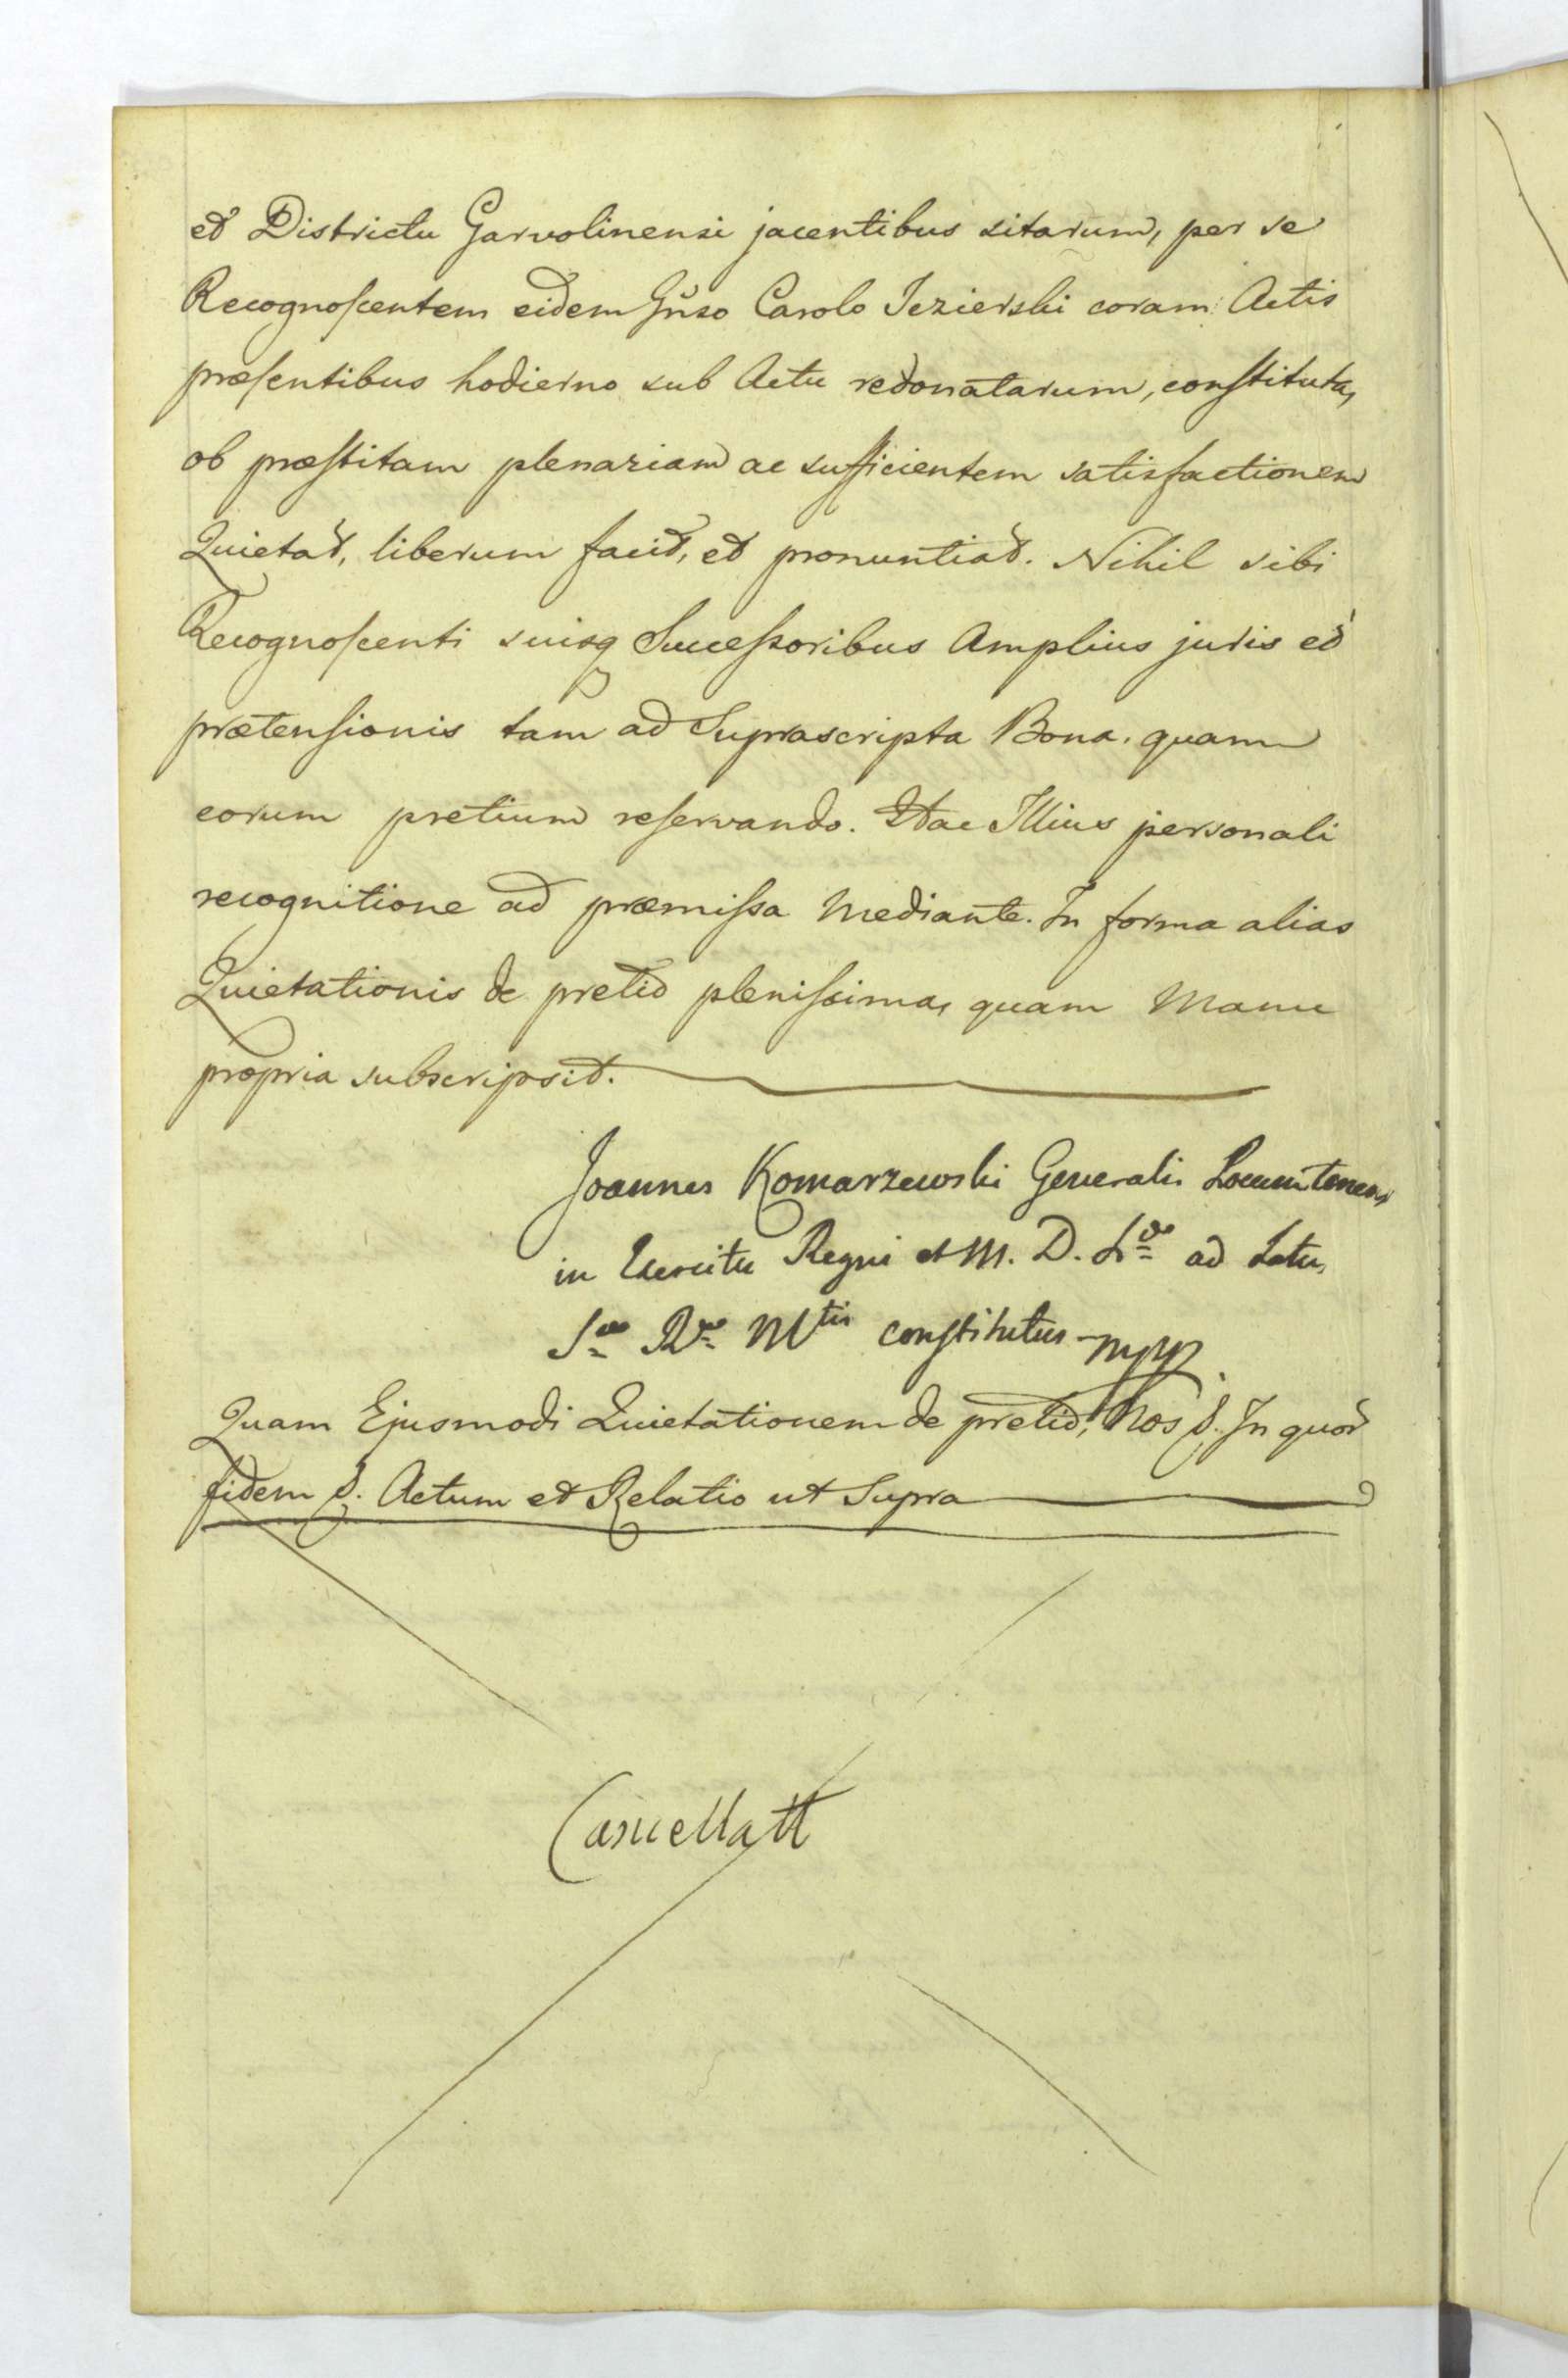 et Districtu Garvolinensi jacentibus sitarum, per se
Recognoscentem eidem Gñso Carolo Jezierski coram Actis
præsentibus hodierno sub Actu redonatarum, constituta,
ob præstitam plenariam ac sufficientem satisfactionem
Quietat, liberum facit, et pronuntiat. Nihil sibi
Recognoscenti suisq Successoribus Amplius juris et
prætensionis tam ad Suprascripta Bona, quam
eorum pretium reservando. Hac Illius personali
recognitione ad præmissa Mediante. In forma alias
Quietationis de pretio plenissima, quam Manu
propria subscripsit.
Joannes Komarzewski Generalis Locumtenens
in Exercitu Regni et M. D. L. ad Latus
S. R. Mtis constitutus mpp
Quam Ejusmodi Quietationem de pretio, Nos &. In quor
fidem &. Actum et Relatio ut Supra
Cancellatt